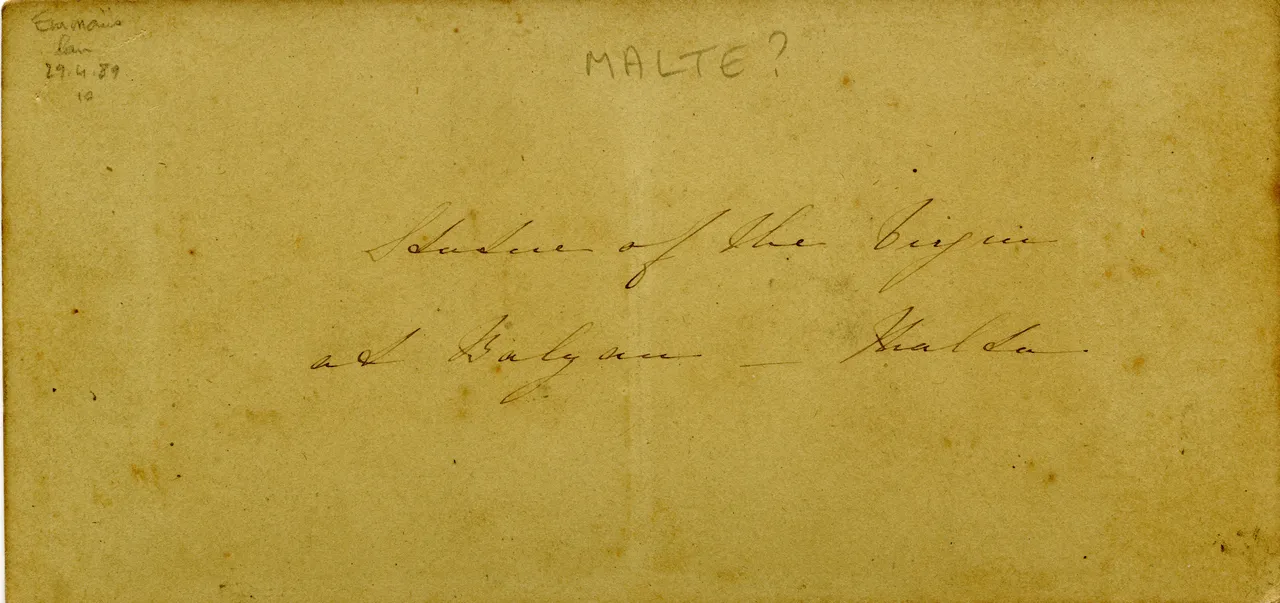 Emmaüs
29.4.89
10
MALTE?
Statue of the Virgin
at Balzan — Malta